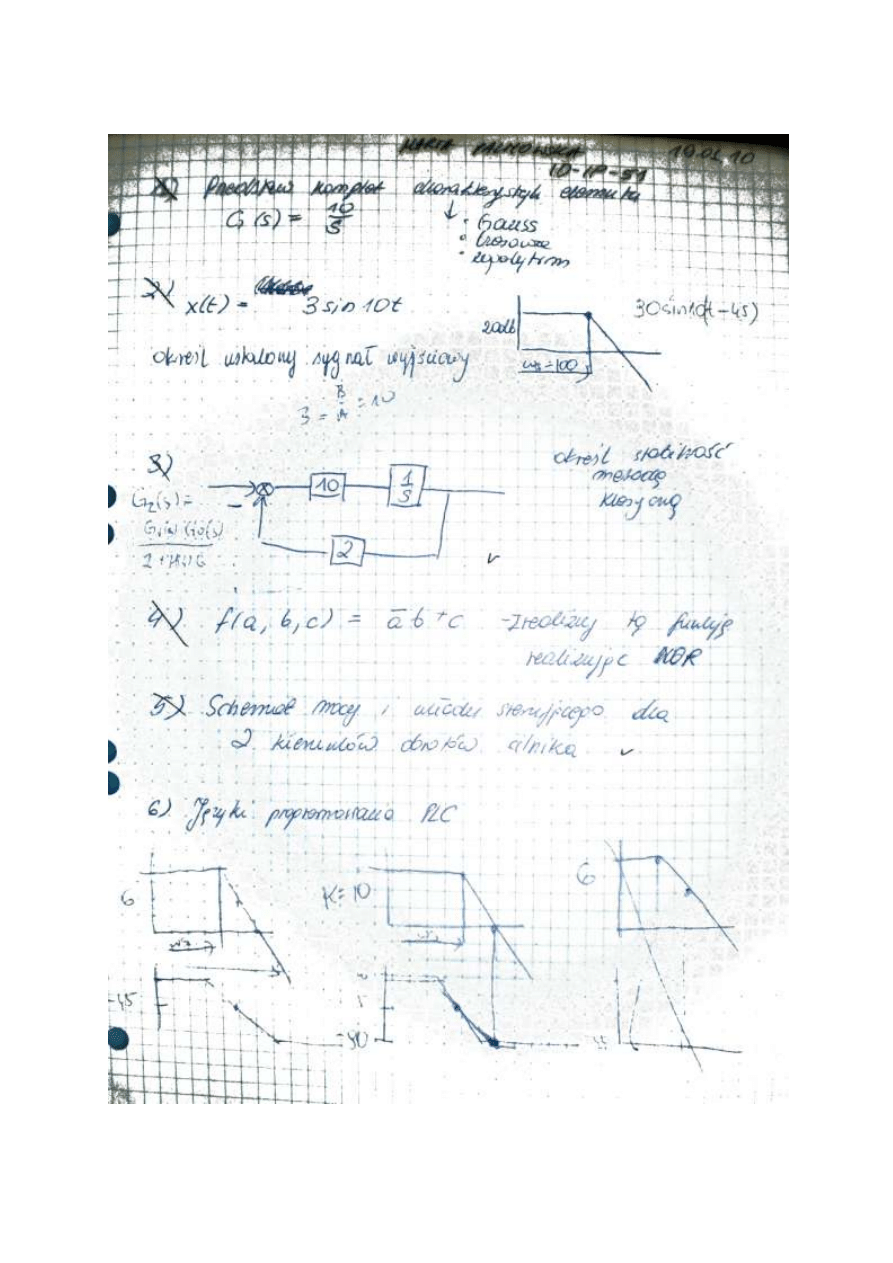 ID-IP-51
1) Przedstaw komplet charakterystyk elementu
G(s) = 10/s
↓ • Gauss
• czasowe
2) x(t) = 3 sin 10t
20db
ω = 100
30 sin 10(t - 45)
określ ustalony sygnał wyjściowy
B/A = 10
3)
10
1/s
2
określ stabilność
metodą
klasyczną
G₂(s) =
4) f(a, b, c) = a̅b + c - Zrealizuj tą funkcję
realizując NOR
5) Schemat mocy i układu sterującego dla
2 kierunków obrotów silnika
6) Języki programowania PLC
6
K = 10
6
-45
-90